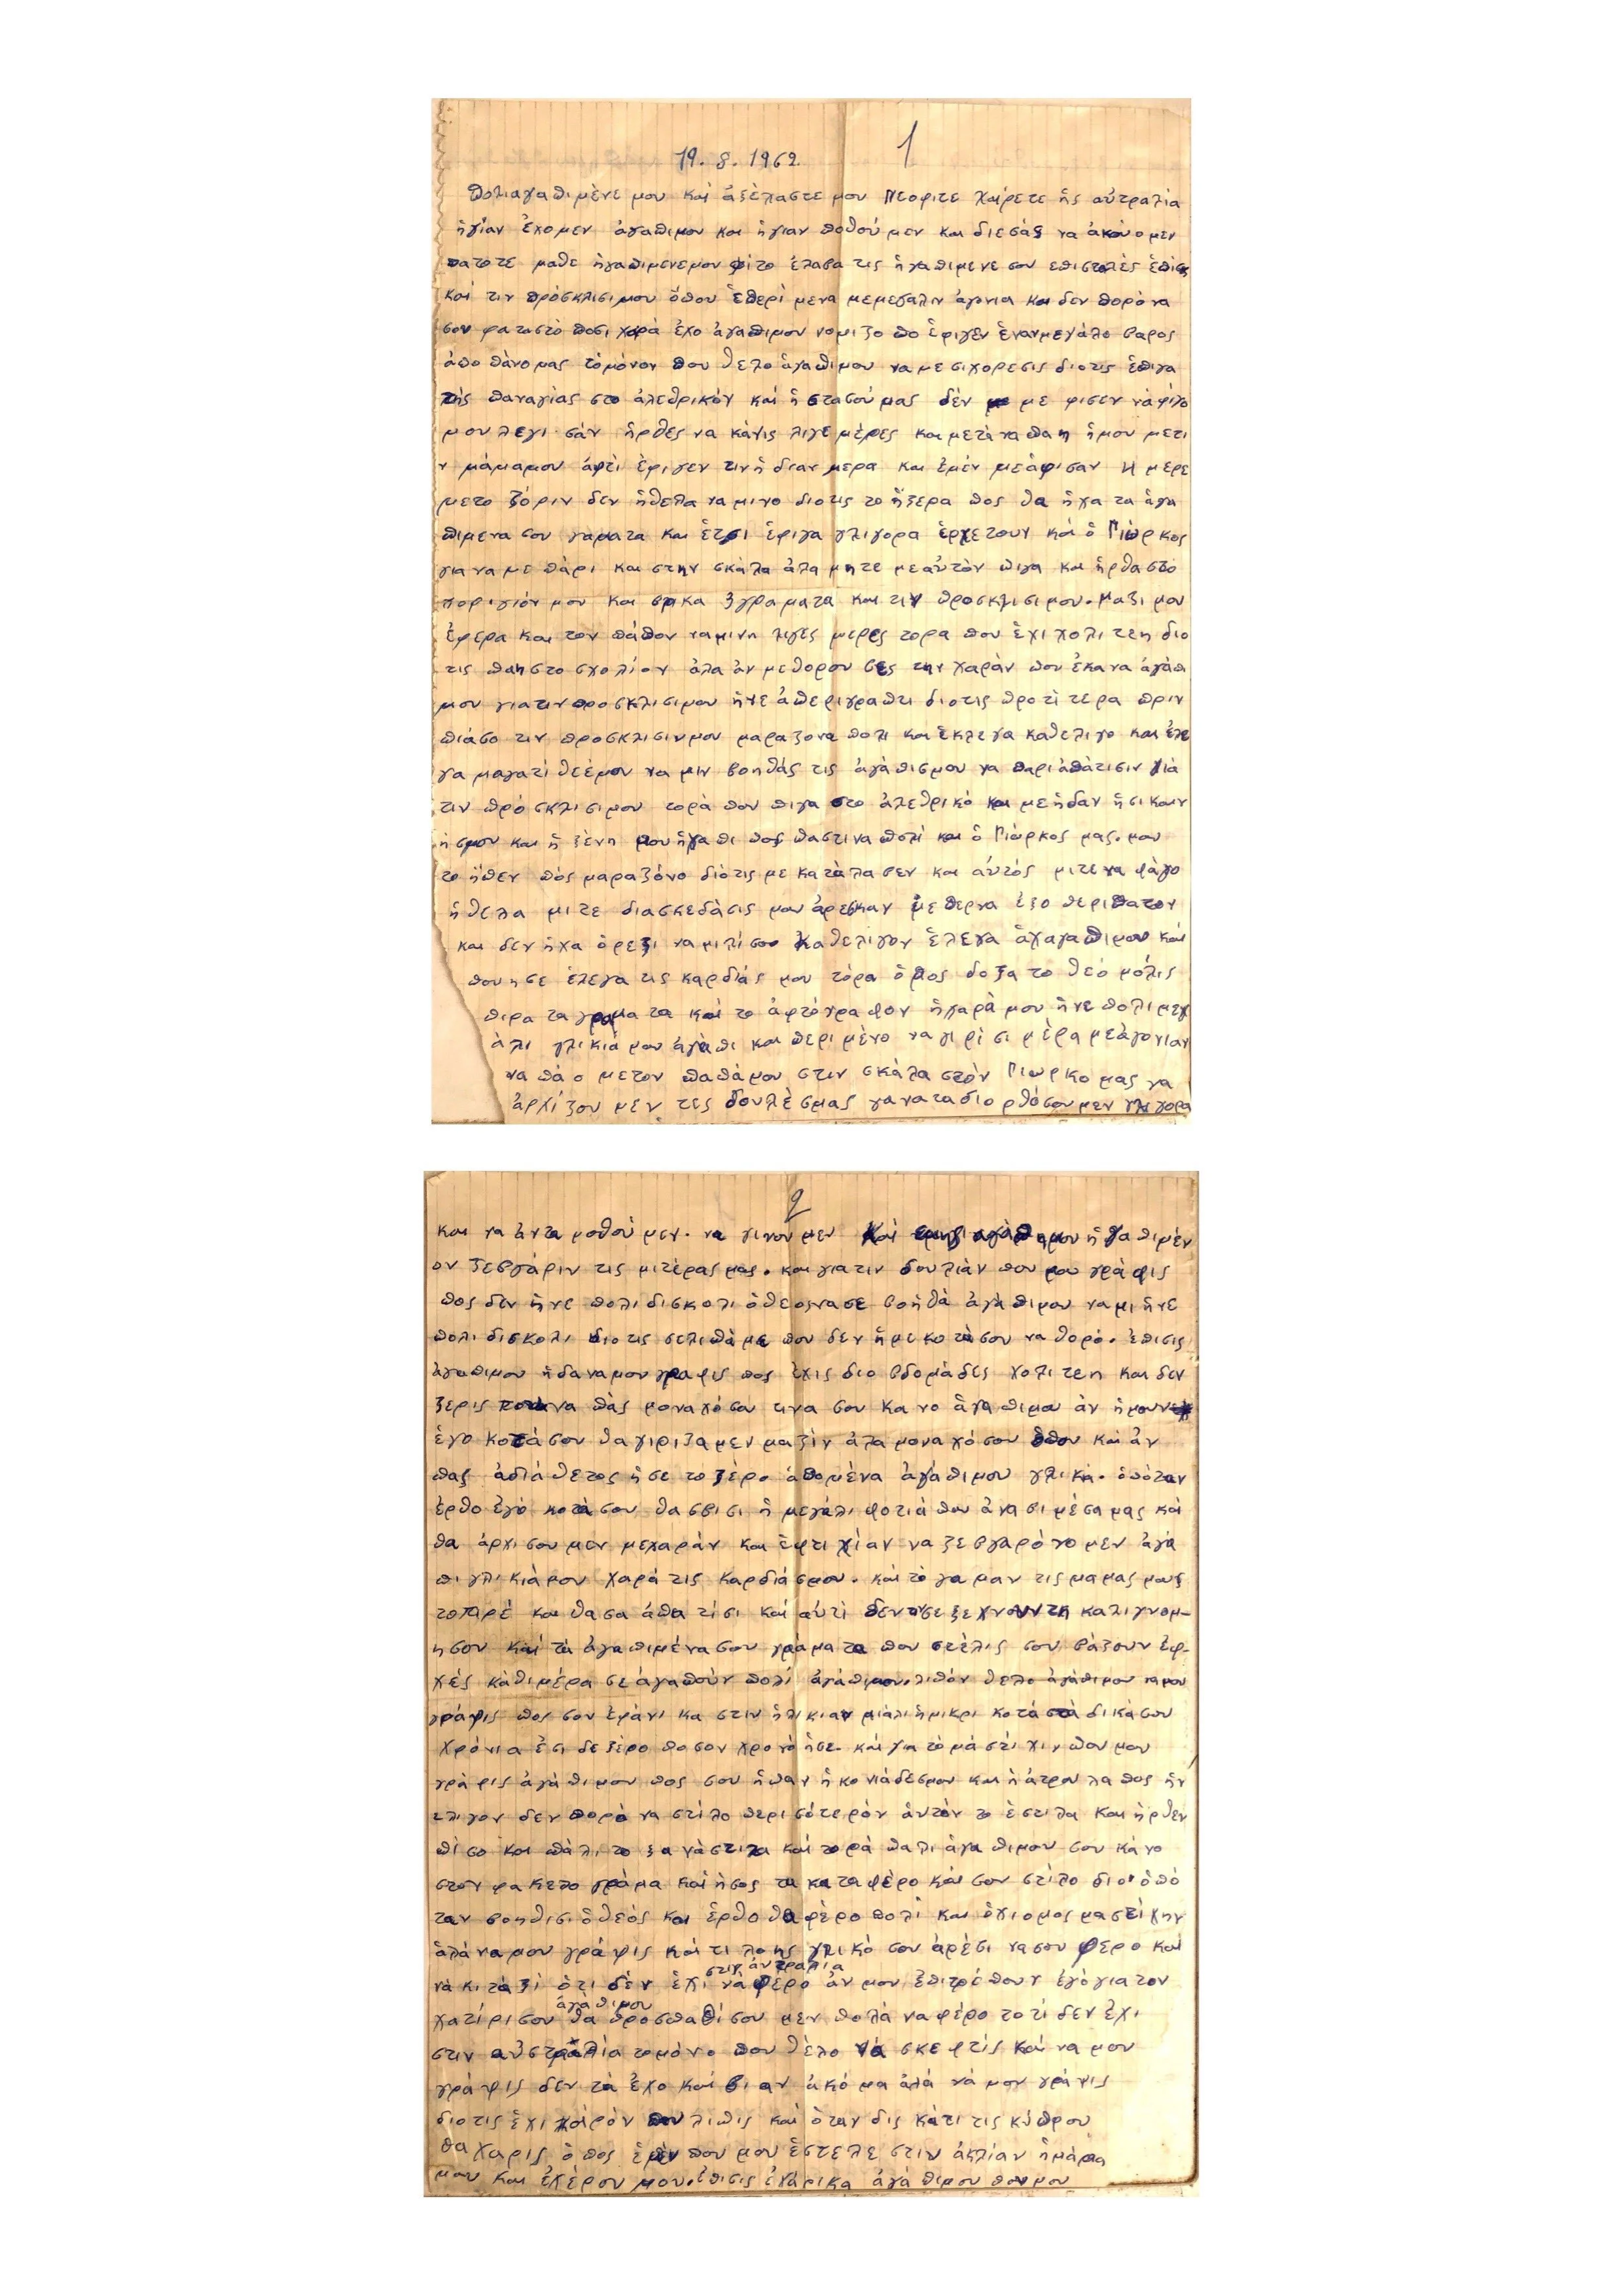 1
19. 8. 1962
Πολιαγαπιμένε μου και άξέχαστε μου Νεοφιτε χαίρετε ής αύτραλία
ήγίαν έχομεν άγαπιμου και ήγιαν ποθούμεν και διεσάς να άκούομεν
πατοτε μαθε ήγαπιμενεμου φίτο έλαβα τις ήγαπιμενε σου επιστολές έπισις
και τιν πρόσκλισιμου όπου έπερίμενα μεμεγαλιν άγονια και δεν πορό να
σου φαταστό ποσι χαρά έχο άγαπιμου νομιζο πο έφιγεν έναν μεγάλο βαρος
άπο πάνο μας τόμόνον που θελο άγαπιμου να με σιχορεσις διοτις έπιγα
τής παναγίας στο άλεθρικόν και ή στασού μας δέν με φισεν νάφίγο
μου λεγι σάν ήρθες να κάνις λιγε μέρες και μετά να πας ήμου μετι
ν μάμαμου άφτί έφιγεν τινή διαν μερα και έμέν μεάφισαν 4 μερε
μετο ζόριν δεν ήθελα να μινο διοτις το ήξερα πος θα ήχα τα άγα
πιμενα σου γραματα και έτσι έφιγα γλιγορα έρχετουν και ό Γιώρκος
για να με πάρι και στην σκάλα άλα μητε μεαύτόν πιγα και ήρθα στο
χοριγιόν μου και βρικα 3 γραματα και τιν προσκλισιμου. Μαζι μου
έφερα και τον πάπον ναμινη λιγες μερες τορα που έχι χολι τεη διο
τις παη στο σχολίον άλα άν μεθορου σες την χαράν που έκανα άγάπι
μου γιατιν προσκλισιμου ήνε άπεριγραπτι διοτις προτί τερα πριν
πιάσο τιν προσκλισιν μου μαραζονα πολι και έκλεγα καθελιγο και έλε
γα μαγατί θεέμου να μιν βοηθάς τις άγάπισμου να παρι άπάτισιν γιά
τιν πρόσκλισιμου τορά που πιγα στο άλεθρικό και με ήδαν ή σι καιν
ή σμου και ή ξένη μου ήγαπι πος παστινα πολί και ό Γιώρκος μας. μου
το ήπεν πός μαραζόνο διότις με κατάλαβεν και αύτός μιτε να φάγο
ήθελα μιτε διασκεδάσις μου άρεσκαν με περνα έξο περιπατον
και δεν ήχα όρεξι να μιλίσο καθελιγον έλεγα άχαγαπιμου και
που ησε έλεγα τις καρδιάς μου τόρα όμος δοξα το θεό μόλις
πιρα τα γραματα και το άφτόγραφον ήχαρά μου ήνε πολι μεγ
άλι γλικιά μου άγάπι και περιμένο να γιρίσι μέρα μεάγονιαν
να πά ο μετον παπάμου στιν σκάλα στόν Γιωρκο μας να
άρχίζου μεν τες δουλές μας γανατα διορθόσου μεν γλιγορα
2
και να άντα μοθού μεν. να γινου μεν και άγάπημου ήγαπιμέν
ον ζεβγάριν τις μιτέρας μας. και γιατιν δουλιάν που μου γράφις
πος δεν ήνε πολι δισκολι ό θεος να σε βοηθά άγάπιμου να μι ήνε
πολι δισκολι διοτις σελιπάμε που δεν ήμε κοτά σου να θορό. έπισις
άγαπιμου ήδα να μου γραφις πος έχις διο βδομάδες χολι τεη και δεν
ξερις να πάς μοναχόσου τινα σου κανο άγαπιμου άν ήμουν
έγο κοτά σου θα γιριζαμεν μαζίν άλα μοναχό σου όπου και άν
πας άδιάθετος ήσε το ξέρο άπομένα άγάπιμου γλικα. όπόταν
έρθο έγό κοτά σου θα σβισι ή μεγάλι φοτιά που άνα βι μέσα μας και
θα άρχισου μεν μεχαράν και έφτιχίαν να ζεβγαρόνο μεν άγά
πι γλικιάμου χαρά τις καρδιάσμου. και τό γραμαν τις μαμας μας
τοπιρέ και θα σα άπατίσι και αύτί δεν σε ξεχνουν τη καλι γνομ-
η σου και τά άγαπιμένα σου γράματα που στέλις σου βάζουν έφ-
χές κάθιμέρα σε άγαπούν πολί άγάπιμου. λιπόν θελο άγάπιμου ναμου
γράψις πος σου έφάνι κα στιν ήλικιαν μιάλι ή μικρί κοτά στά δικά σου
χρόνια έσι δε ξέρο ποσον χρονό ήσε. και για τό μά στίχιν που μου
γράφις άγάπιμου πος σου ήπαν ή κονιάδες μου και ή άτρου λα πος ήν
ελιγον δεν πορό να στίλο περισότερόν άντόν το έστιλα και ήρθεν
πίσο και πάλι το ξανάστιλα και τορά παλι άγαπιμου σου κάνο
στον φακελο γράμα και ήσος τα καταφέρο και σου στίλο διο όπό
ταν βοηθισι ό θεός και έρθο θα φέρο πολί και όχι ομος μαστίχην
άλά να μου γράψις και τι λοης γλικό σου άρέσι να σου φερο και
στιν άντραλια
νά κιτάξι ότι δέν έχι νά φέρο άν μου έπιτρέπουν έγό για τον
άγάπιμου
χατίρι σου θα προσπαθίσου μεν πολά να φέρο το τί δεν έχι
στιν αύστραλία τομόνο που θέλο νά σκεφτίς και να μου
γράψις δεν τά έχο και βι αν άκόμα άλά νά μου γράψις
διοτις έχι καιρόν που λιπις και όταν δις κάτι τις κύπρου
θα χαρις ό πος έμέν που μου έστελε στιν άκλίαν ήμάμα
μου και έχέρου μου. έπισις έχάρικα άγάπιμου πουμου